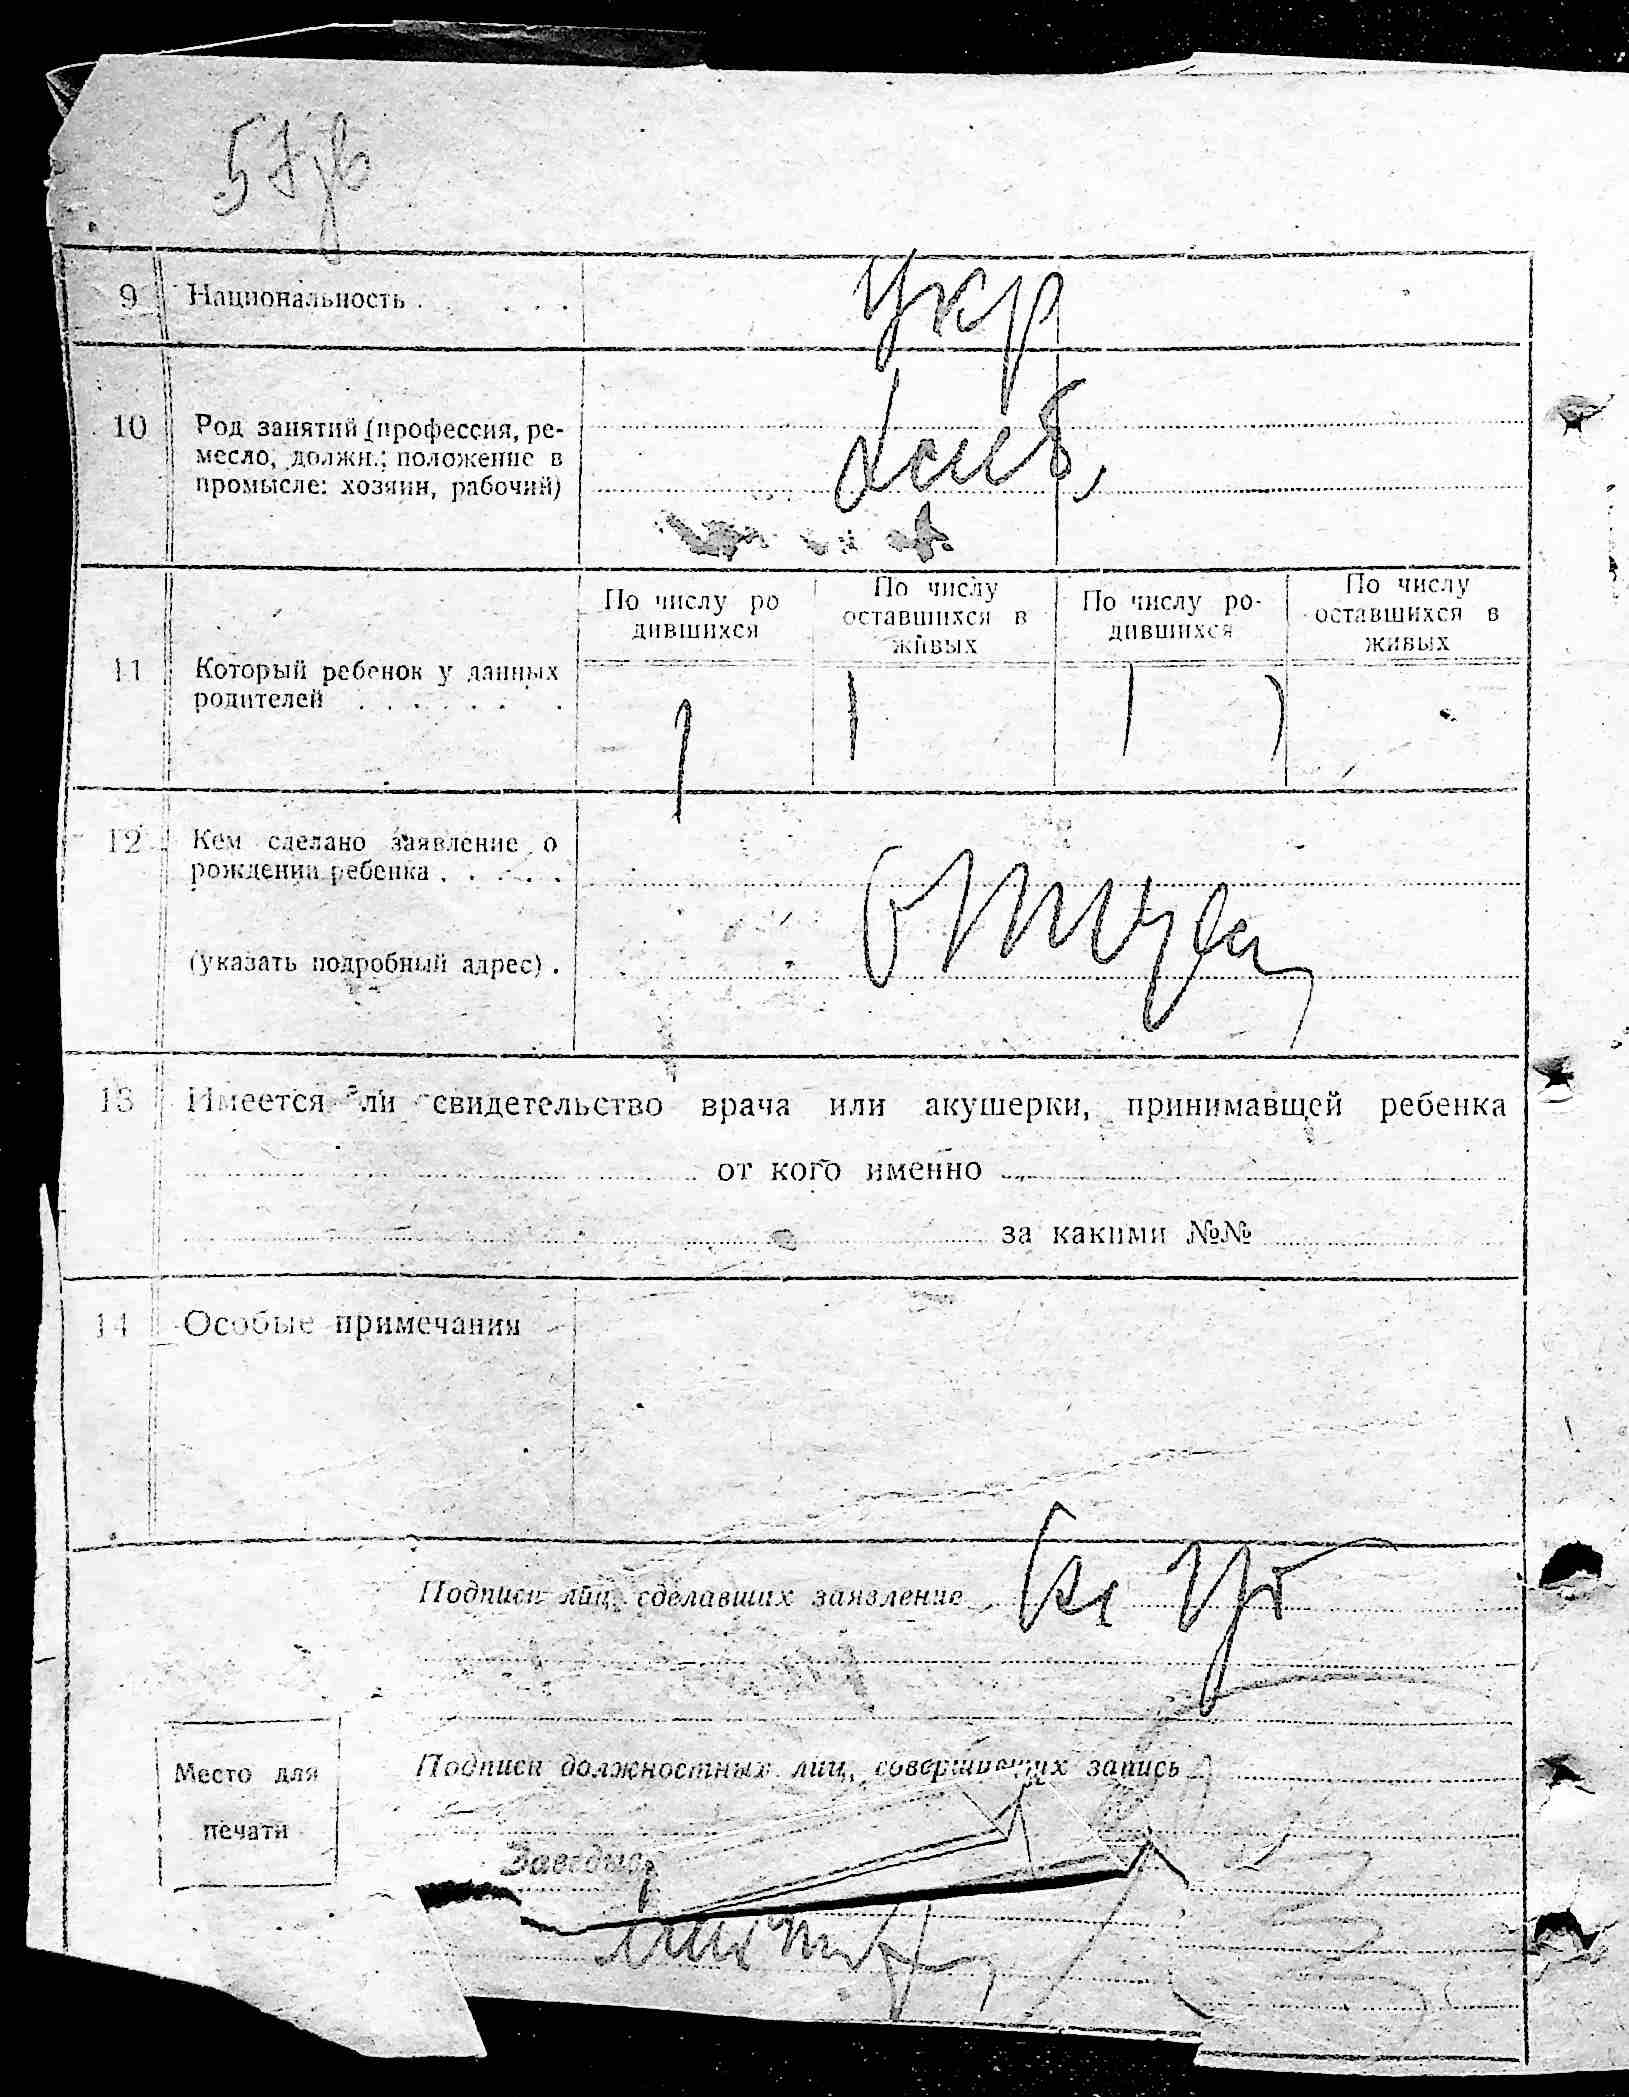 57
9 Национальность . . . .
Укр
10 Род занятий (профессия, ре-
месло, должн.; положение в
промысле: хозяин, рабочий)
Хлеб,
По числу ро
дившихся
По числу
оставшихся в
живых
По числу ро-
дившихся
По числу
оставшихся в
живых
11 Который ребенок у данных
родителей . . . . . . .
1 1 1 )
12 Кем сделано заявление о
рождении ребенка . . . . .
(указать подробный адрес) .
13 Имеется ли свидетельство врача или акушерки, принимавшей ребенка
от кого именно
за какими №№
14 Особые примечания
Подписи лиц, сделавших заявление
Подписи должностных лиц, совершивших запись
Место для
печати
Заведыв.